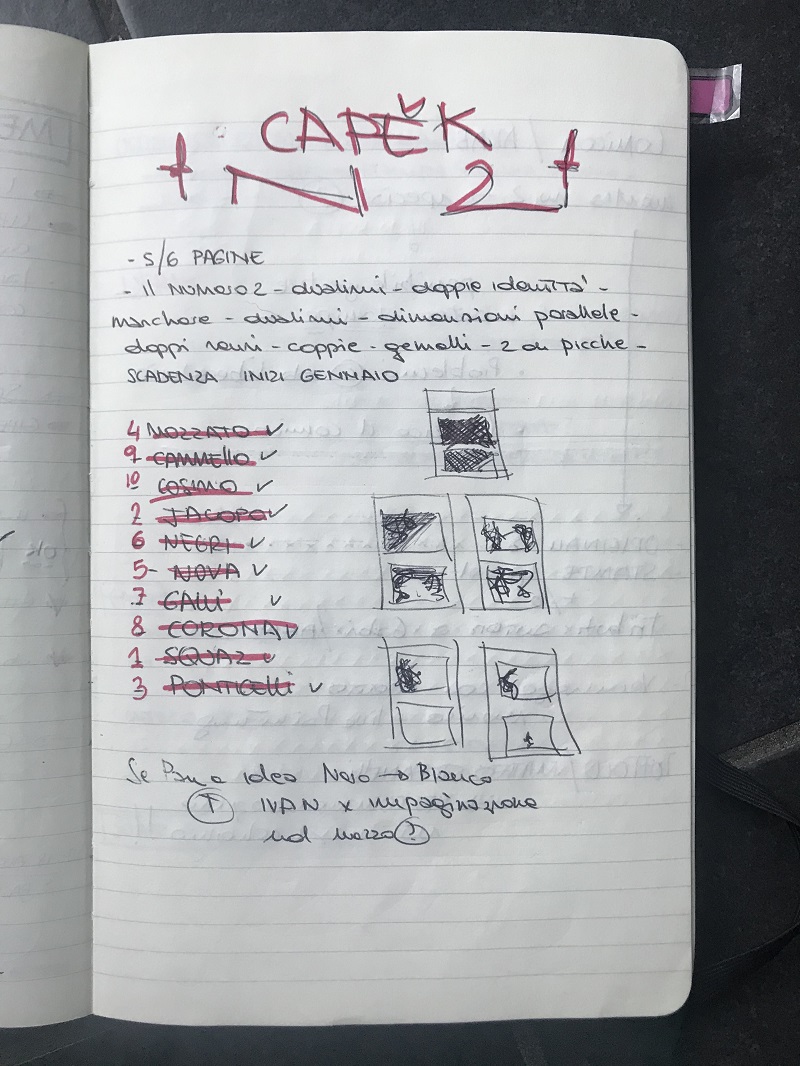 CAPĚK
N 2
- 5/6 PAGINE
- Il NUMERO 2 - dualismi - doppie identità -
maschere - dualismi - dimensioni parallele -
doppi sensi - coppie - gemelli - 2 di picche -
SCADENZA INIZI GENNAIO
4 MOZZATO ✓
9 CAMMELLO ✓
10 COSIMO ✓
2 JACOPO ✓
6 NEGRI ✓
5- NOVA ✓
7 GALLI ✓
8 CORONA ✓
1 SQUAZ ✓
3 PONTICELLI ✓
idea Nero → Bianco
IVAN x impaginazione
nel mezzo ?